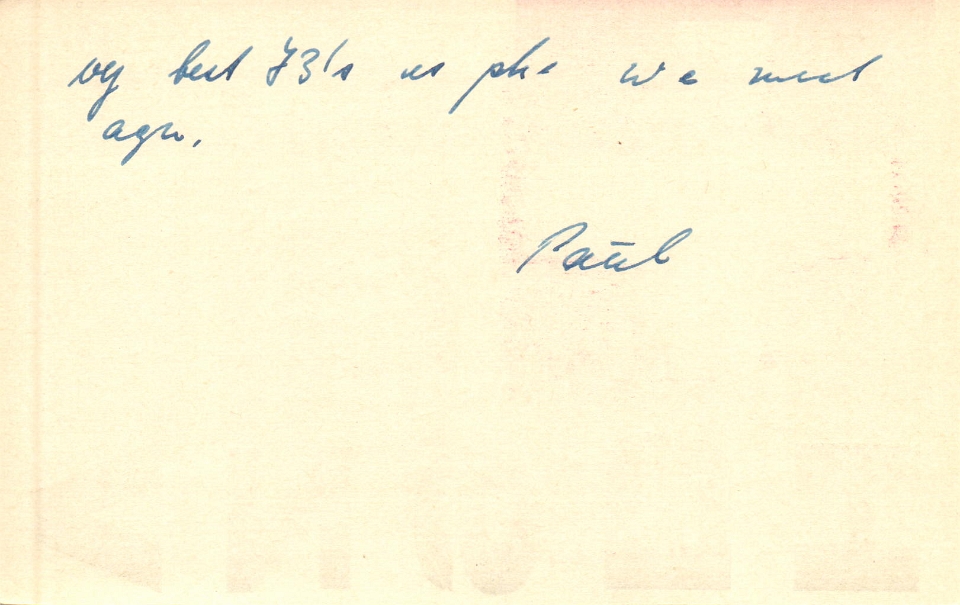 vy best 73's es pse we meet
agn.
Paul